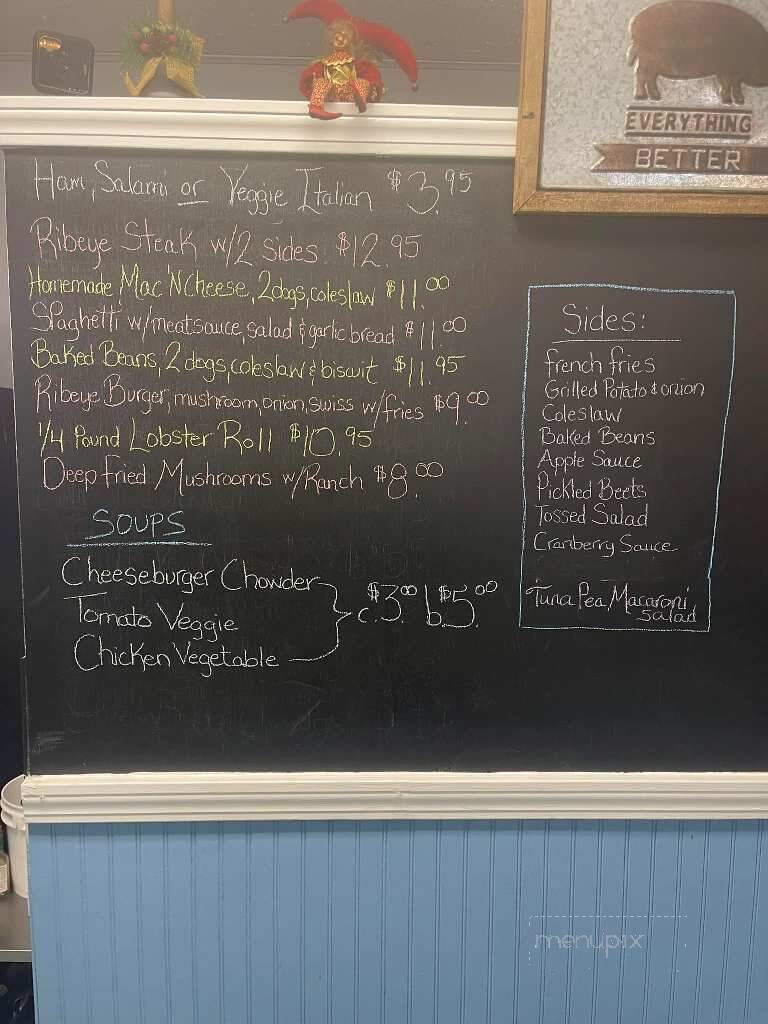 EVERYTHING
BETTER
Ham, Salami or Veggie Italian $3.95
Ribeye Steak w/2 Sides $12.95
Homemade Mac 'N Cheese, 2 dogs, coleslaw $11.00
Spaghetti w/meatsauce, salad & garlic bread $11.00
Baked Beans, 2 dogs, coleslaw & biscuit $11.95
Ribeye Burger, mushroom, onion, swiss w/fries $9.00
1/4 Pound Lobster Roll $10.95
Deep Fried Mushrooms w/Ranch $8.00
SOUPS
Cheeseburger Chowder
Tomato Veggie
Chicken Vegetable
c. $3.00 b. $5.00
Sides:
french fries
Grilled Potato & onion
Coleslaw
Baked Beans
Apple Sauce
Pickled Beets
Tossed Salad
Cranberry Sauce
Tuna Pea Macaroni
Salad
menupix